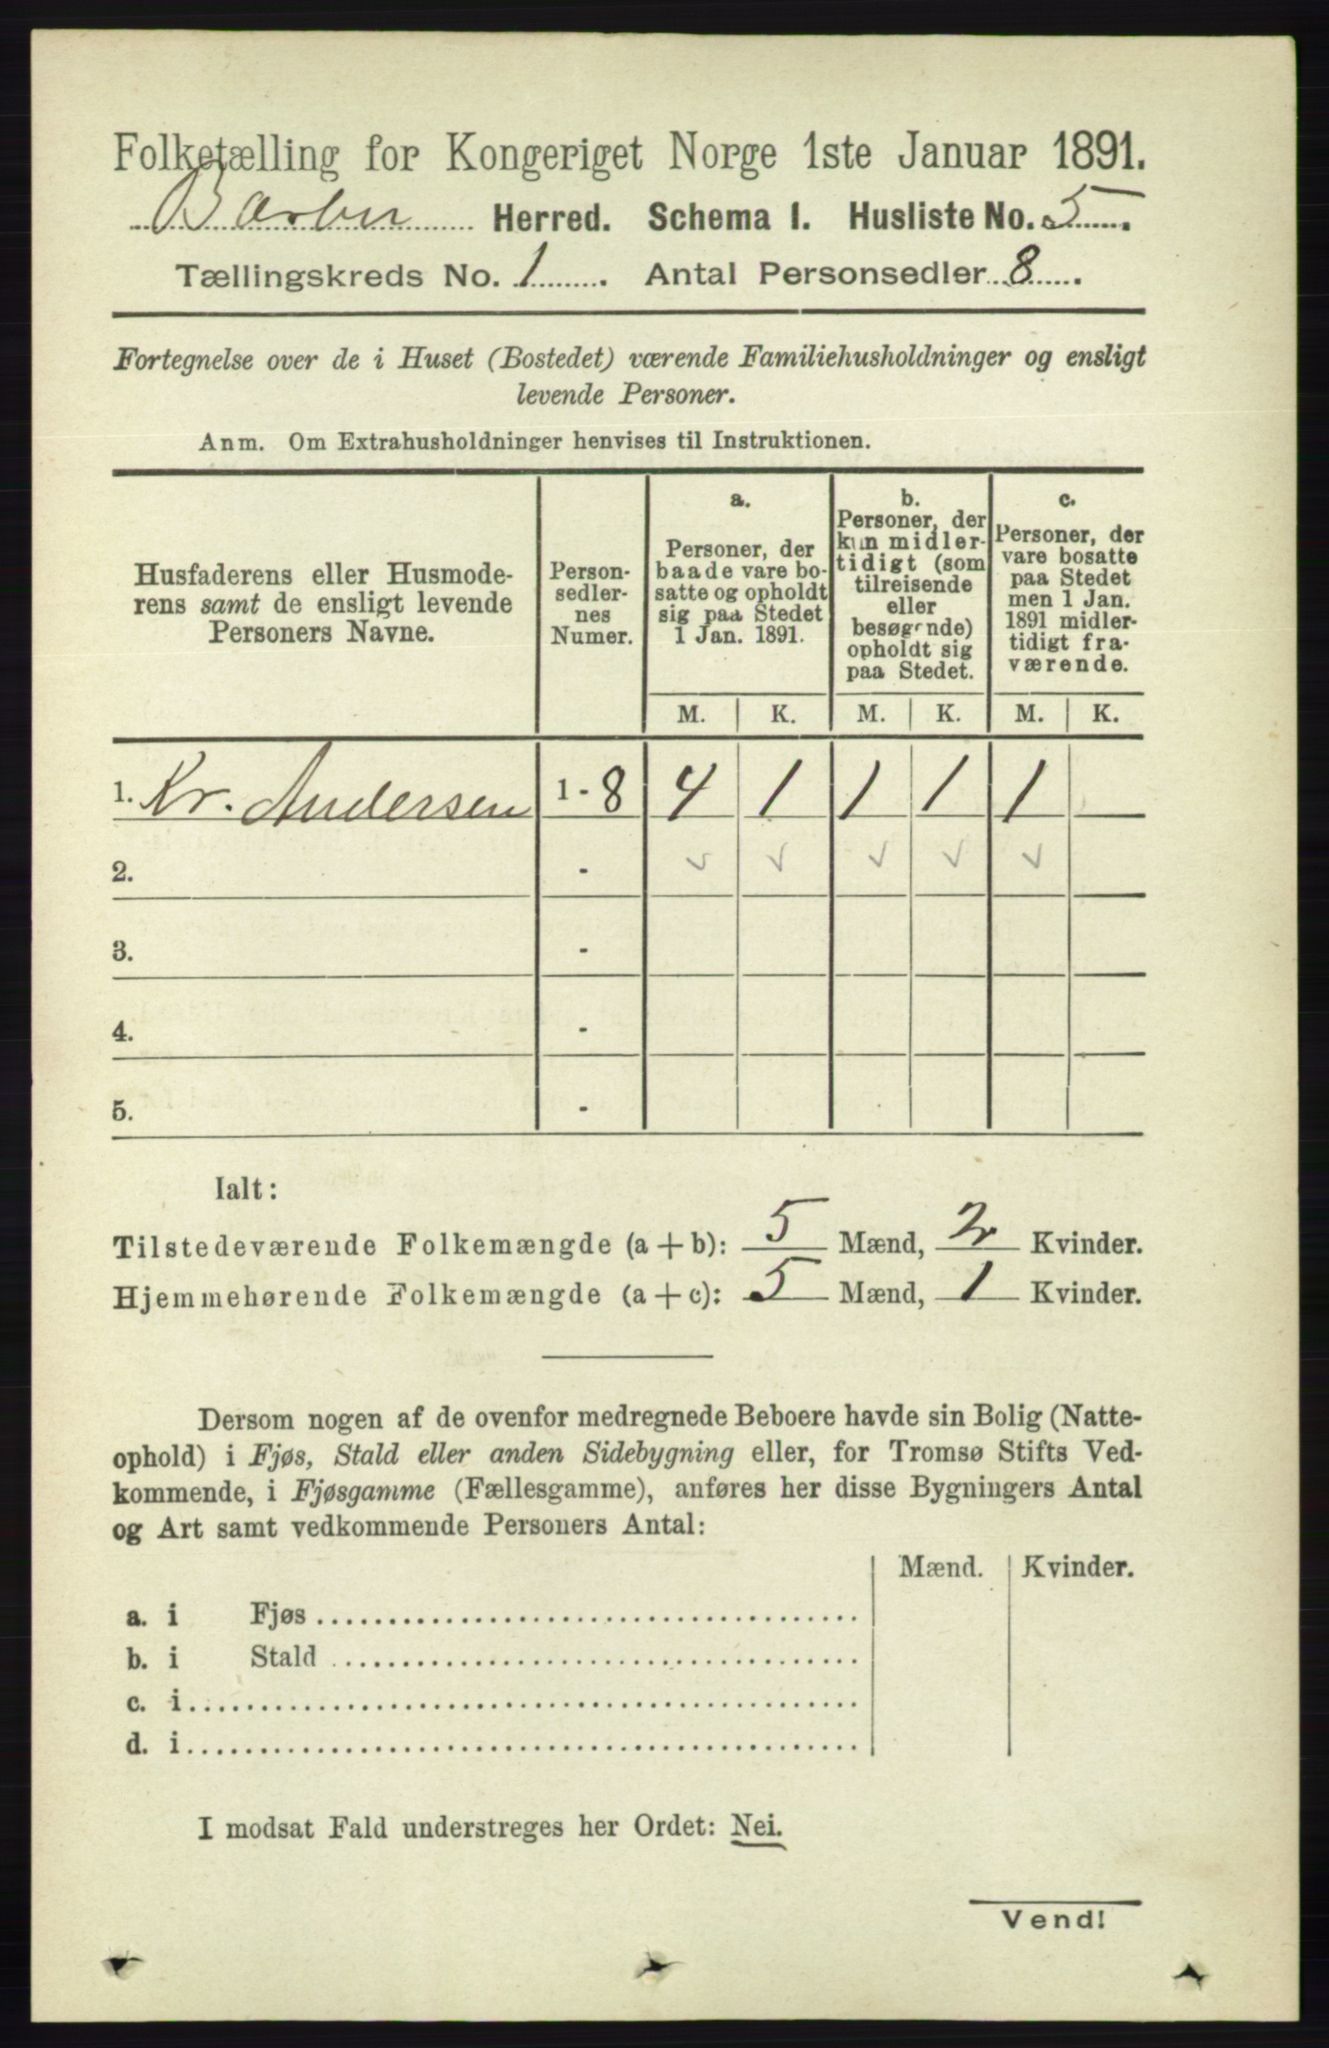 Folketælling for Kongeriget Norge 1ste Januar 1891.
Barbu Herred. Schema I. Husliste No. 5.
Tællingskreds No. 1. Antal Personsedler 8.
Fortegnelse over de i Huset (Bostedet) værende Familiehusholdninger og ensligt
levende Personer.
Anm. Om Extrahusholdninger henvises til Instruktionen.
Husfaderens eller Husmode-
rens samt de ensligt levende
Personers Navne.
Person-
sedler-
nes
Numer.
a.
Personer, der
baade vare bo-
satte og opholdt
sig paa Stedet
1 Jan. 1891.
b.
Personer, der
kun midler-
tidigt (som
tilreisende
eller
besøgende)
opholdt sig
paa Stedet.
c.
Personer, der
vare bosatte
paa Stedet
men 1 Jan.
1891 midler-
tidigt fra-
værende.
M. K. M. K. M. K.
1. Kr. Andersen 1 - 8 4 1 1 1 1
2. - ✓ ✓ ✓ ✓ ✓
3. -
4. -
5. -
Ialt:
Tilstedeværende Folkemængde (a + b): 5 Mænd, 2 Kvinder.
Hjemmehørende Folkemængde (a + c): 5 Mænd, 1 Kvinder.
Dersom nogen af de ovenfor medregnede Beboere havde sin Bolig (Natte-
ophold) i Fjøs, Stald eller anden Sidebygning eller, for Tromsø Stifts Ved-
kommende, i Fjøsgamme (Fællesgamme), anføres her disse Bygningers Antal
og Art samt vedkommende Personers Antal:
Mænd. Kvinder.
a. i Fjøs
b. i Stald
c. i
d. i
I modsat Fald understreges her Ordet: Nei.
Vend!